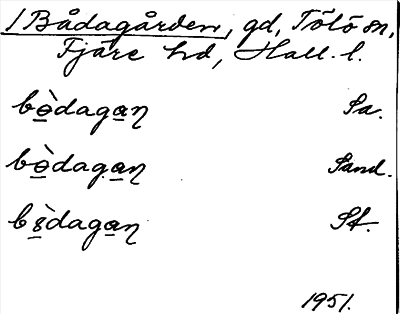 /Bådagården, gd, Tölö sn,
Fjäre hd, Hall. l.
bò̲daga̲ɳ Sa.
bò̲daga̲ɳ Sand.
daga̲ɳ St.
1951.